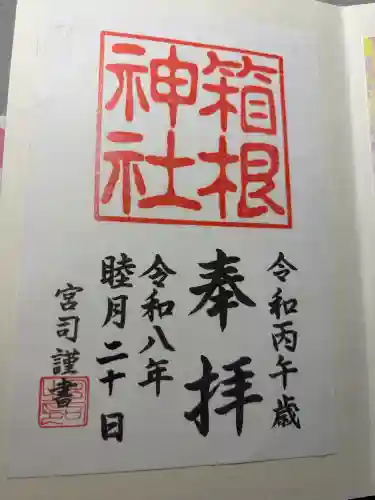 箱根
神社
令和丙午歳
奉拝
令和八年
睦月二十日
宮司謹書